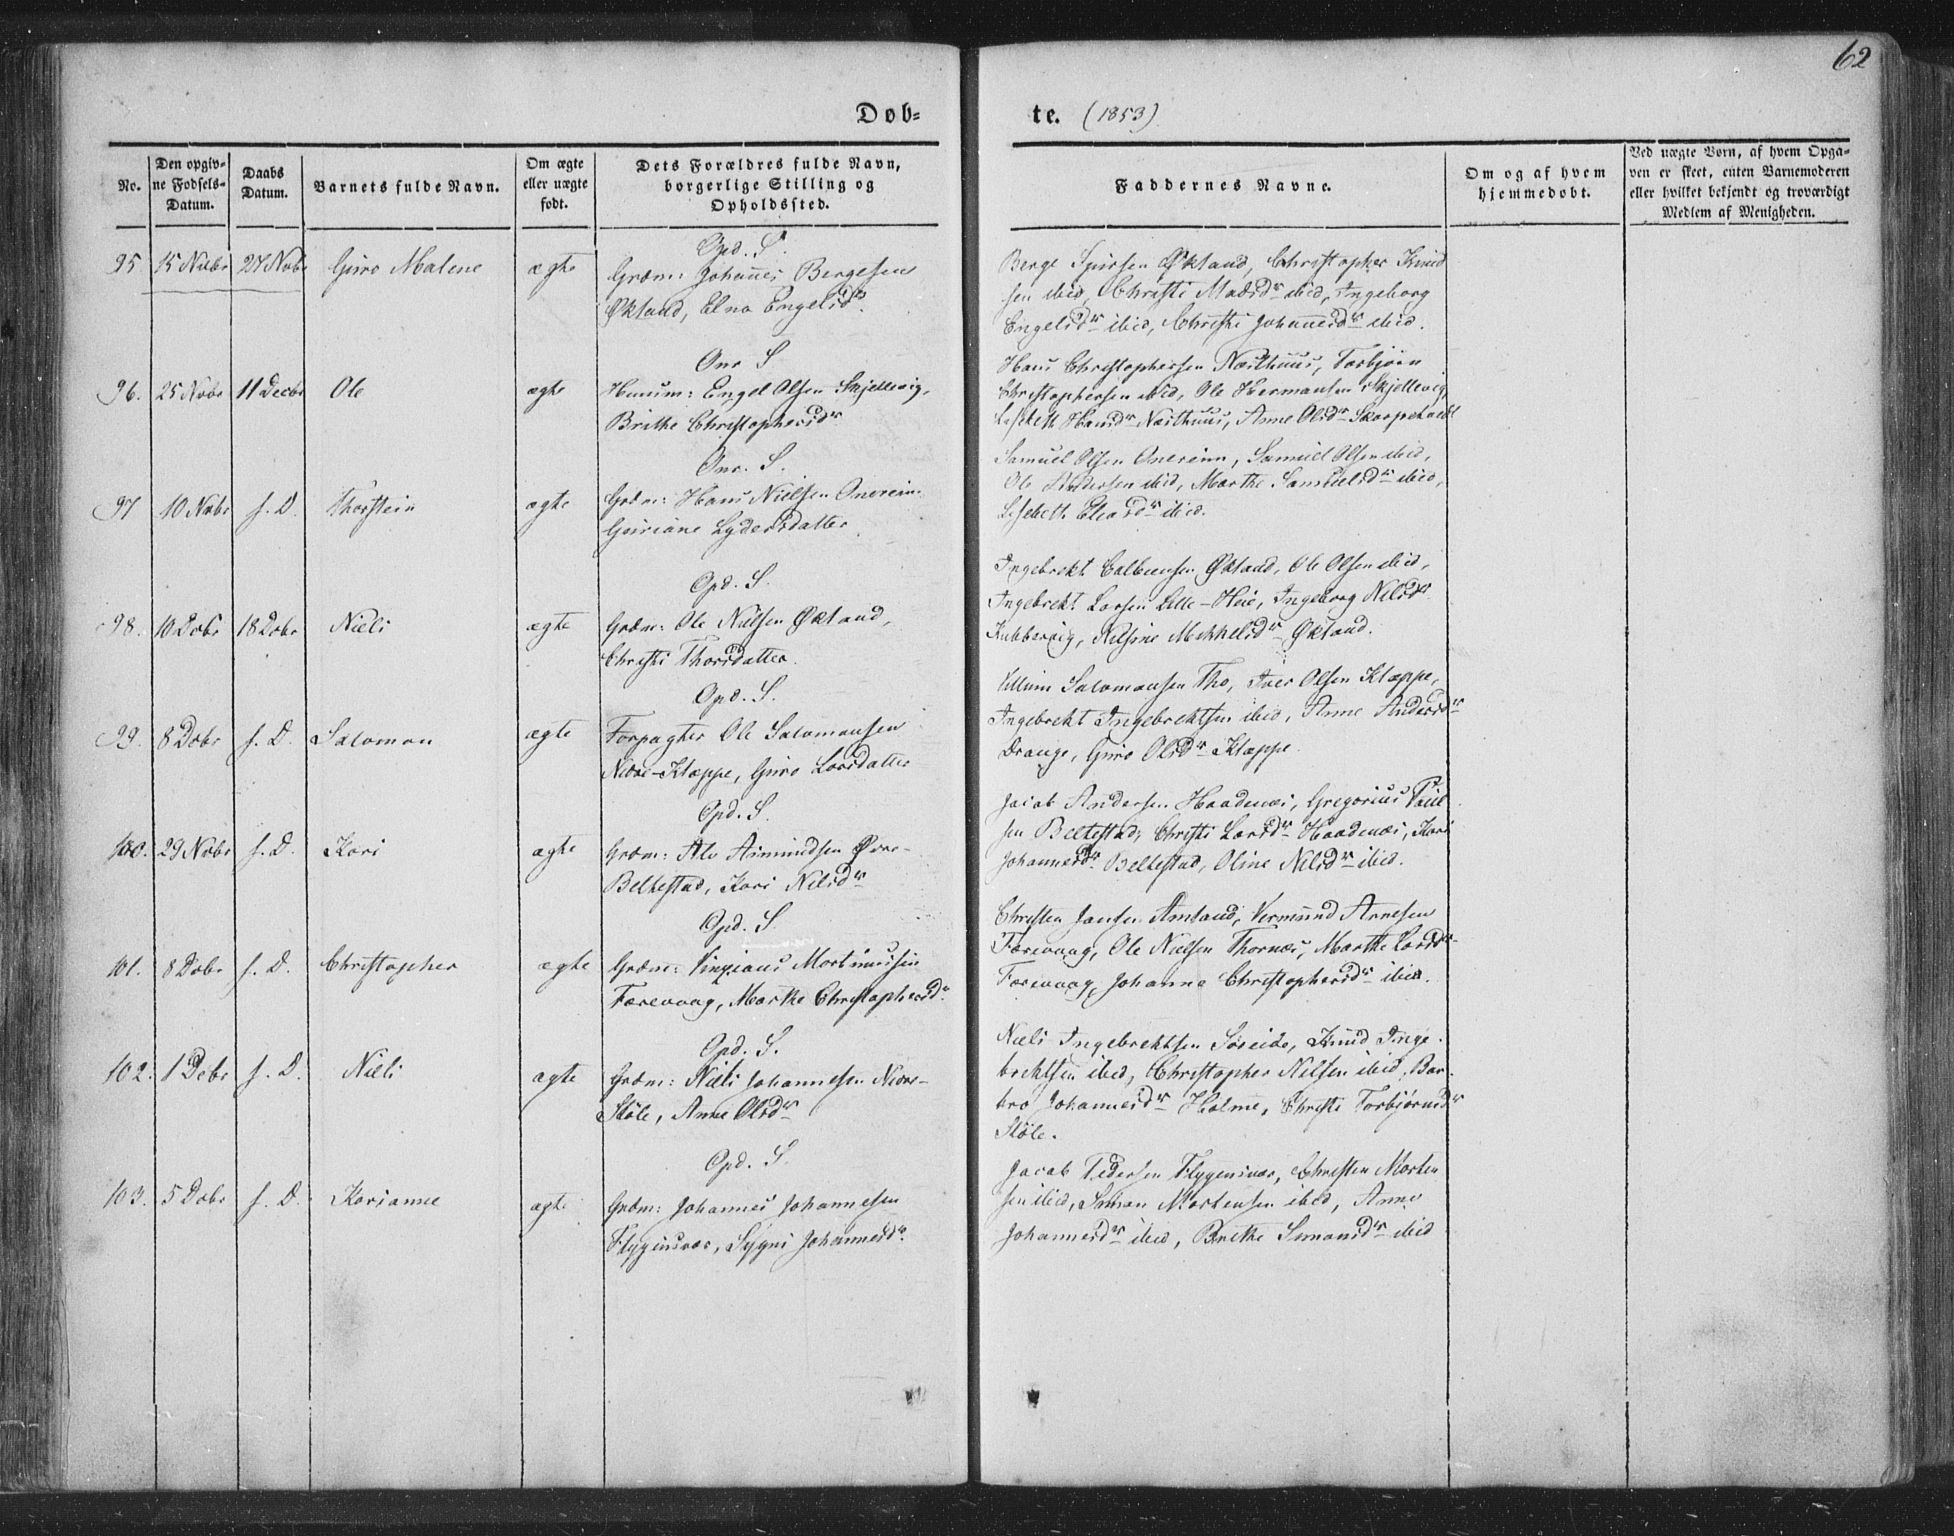 62
Døb-
te. (1853)
No.
Den opgiv-
ne Fødsels-
Datum.
Daabs
Datum.
Barnets fulde Navn.
Om ægte
eller uægte
født.
Dets Forældres fulde Navn,
borgerlige Stilling og
Opholdssted.
Faddernes Navne.
Om og af hvem
hjemmedøbt.
Ved uægte Børn, af hvem Opga-
ven er skeet, enten Barnemoderen
eller hvilket bekjendt og troværdigt
Medlem af Menigheden.
Opd. S.
95 15 Nvbr 27 Nvbr Guro Malene ægte Grdm: Johannes Bergesen
Økland, Elna Engelsdr.
Berge Sjursen Økland, Christopher Knud
sen ibid, Christi Madsdr ibid, Ingeborg
Engelsdr ibid, Christi Johannesdr ibid.
Onr S
96. 25 Nvbr 11 Decbr Ole ægte Huusm: Engel Olsen Skjellevig,
Brithe Christophersdr
Hans Christophersen Næsthuus, Torbjørn
Christophersen ibid, Ole Hermansen Skjellevig,
Lisebeth Hansdr Næsthuus, Anne Olsdr
Onr. S.
97 10 Nvbr s. D. Thorstein ægte Grdm: Hans Nielsen Onereim
Guriane Lydersdatter
Samuel Olsen Onereim, Samuel Olsen ibid,
Ole Pedersen ibid, Marthe Samuelsdr ibid,
Lisebeth Eliasdr ibid.
Opd. S.
98. 10 Dcbr 18 Dcbr Niels ægte Grdm: Ole Nielsen Økland,
Christi Thorsdatter.
Ingebrekt Økland, Ole Olsen ibid,
Ingebrekt Larsen Lille-Høie, Ingeborg Nilsdr
Kubbervig, Nilsine Mikkelsdr Økland.
Opd. S.
99. 8 Dcbr s. D. Salomon ægte Forpagter Ole Salomonsen
Nedre-Klæppe, Guro Larsdatter
Villum Salomonsen Tho, Iver Olsen Klæppe,
Ingebrekt Ingebrektsen ibid, Anne Andersdr
Drange, Guro Olsdr Klæppe.
Opd. S.
100. 29 Nvbr s. D. Kari ægte Grdm: Ale Asmundsen Øvre-
Beltestad, Kari Nilsdr
Jacob Andersen Haadenæs, Gregorius Poul
sen Beltestad, Christi Larsdr Haadenæs, Kari
Johannesdr Beltestad, Oline Nilsdr ibid.
Opd. S.
101. 8 Dcbr s. D. Christopher ægte Grdm: Mortinussen
Færevaag, Marthe Christophersdr
Christen Jansen Amland, Vermund Arnesen
Færevaag, Ole Nielsen Thornæs, Marthe Larsdr
Færevaag, Johanne Christophersdr ibid.
Opd. S.
102. 1 Dcbr s. D. Niels ægte Grdm: Niels Johannesen Nedre-
Støle, Anne Olsdr
Niels Ingebrektsen Søreide, Knud Inge-
brektsen ibid, Christopher Nilsen ibid, Bar-
bro Johannesdr Holme, Christi Torbjørnsdr
Støle.
Opd. S.
103. 5 Dcbr s. D. Karianne ægte Grdm: Johannes Johannesen
Flygensvær, Sygni Johannesdr
Jacob Pedersen Flygensvær, Christen Morten
sen ibid, Simon Mortensen ibid, Anne
Johannesdr ibid, Brithe Simonsdr ibid